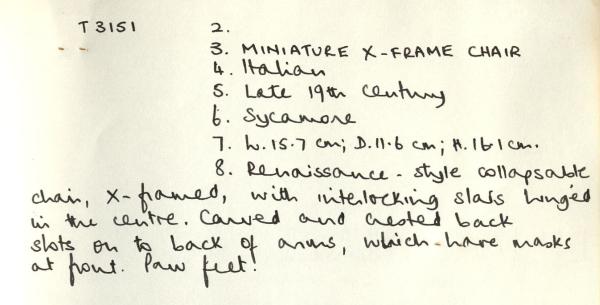 T 3151 2.
3. MINIATURE X-FRAME CHAIR
4. Italian
5. Late 19th century
6. Sycamore
7. W.15.7 cm; D.11.6 cm; H.16.1 cm.
8. Renaissance-style collapsable
chair, X-framed, with interlocking slats hinged
in the centre. Carved and crested back
slots on to back of arms, which have masks
at front. Paw feet.